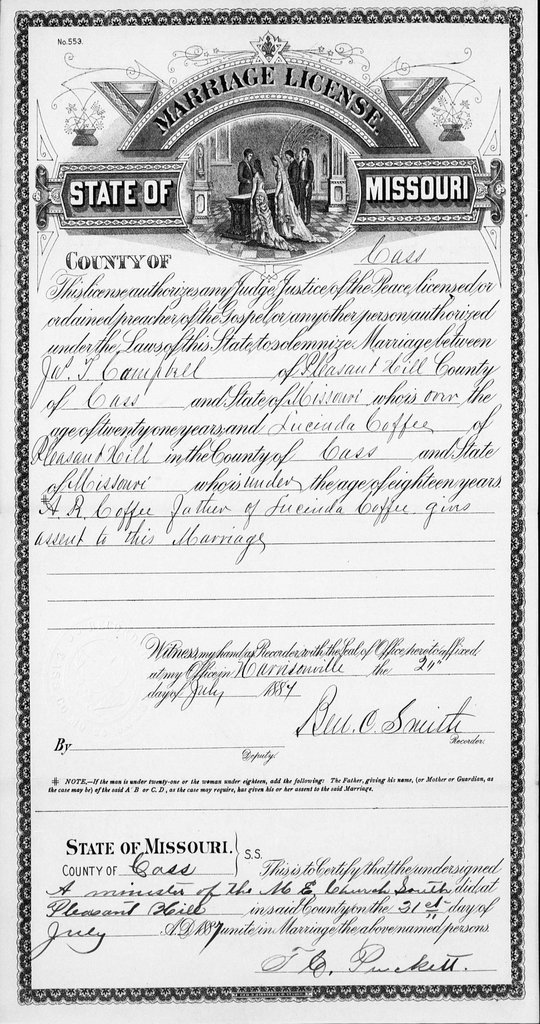 No. 553.
MARRIAGE LICENSE.
STATE OF MISSOURI
COUNTY OF Cass
This license authorizes any Judge, Justice of the Peace, licensed or
ordained preacher of the Gospel, or any other person authorized
under the Laws of this State, to solemnize Marriage between
Jas. T. Campbell of Pleasant Hill County
of Cass and State of Missouri who is over the
age of twenty one years, and Lucinda Coffee of
Pleasant Hill in the County of Cass and State
of Missouri who is under the age of eighteen years
A. R. Coffee father of Lucinda Coffee gives
assent to this Marriage
Witness my hand as Recorder, with the Seal of Office, hereto affixed
at my Office in Harrisonville the
day of July 1887
Ben. O. Smith
Recorder.
By
Deputy.
⁜ NOTE,—If the man is under twenty-one or the woman under eighteen, add the following: The Father, giving his name, (or Mother or Guardian, as
the case may be) of the said A B or C. D, as the case may require, has given his or her assent to the said Marriage.
STATE OF MISSOURI. } S.S.
COUNTY OF Cass This is to Certify that the undersigned
A minister of the M E Church South did at
Pleasant Hill in said County on the 31st day of
July A.D. 1887 unite in Marriage the above named persons
T. C. Puckett.